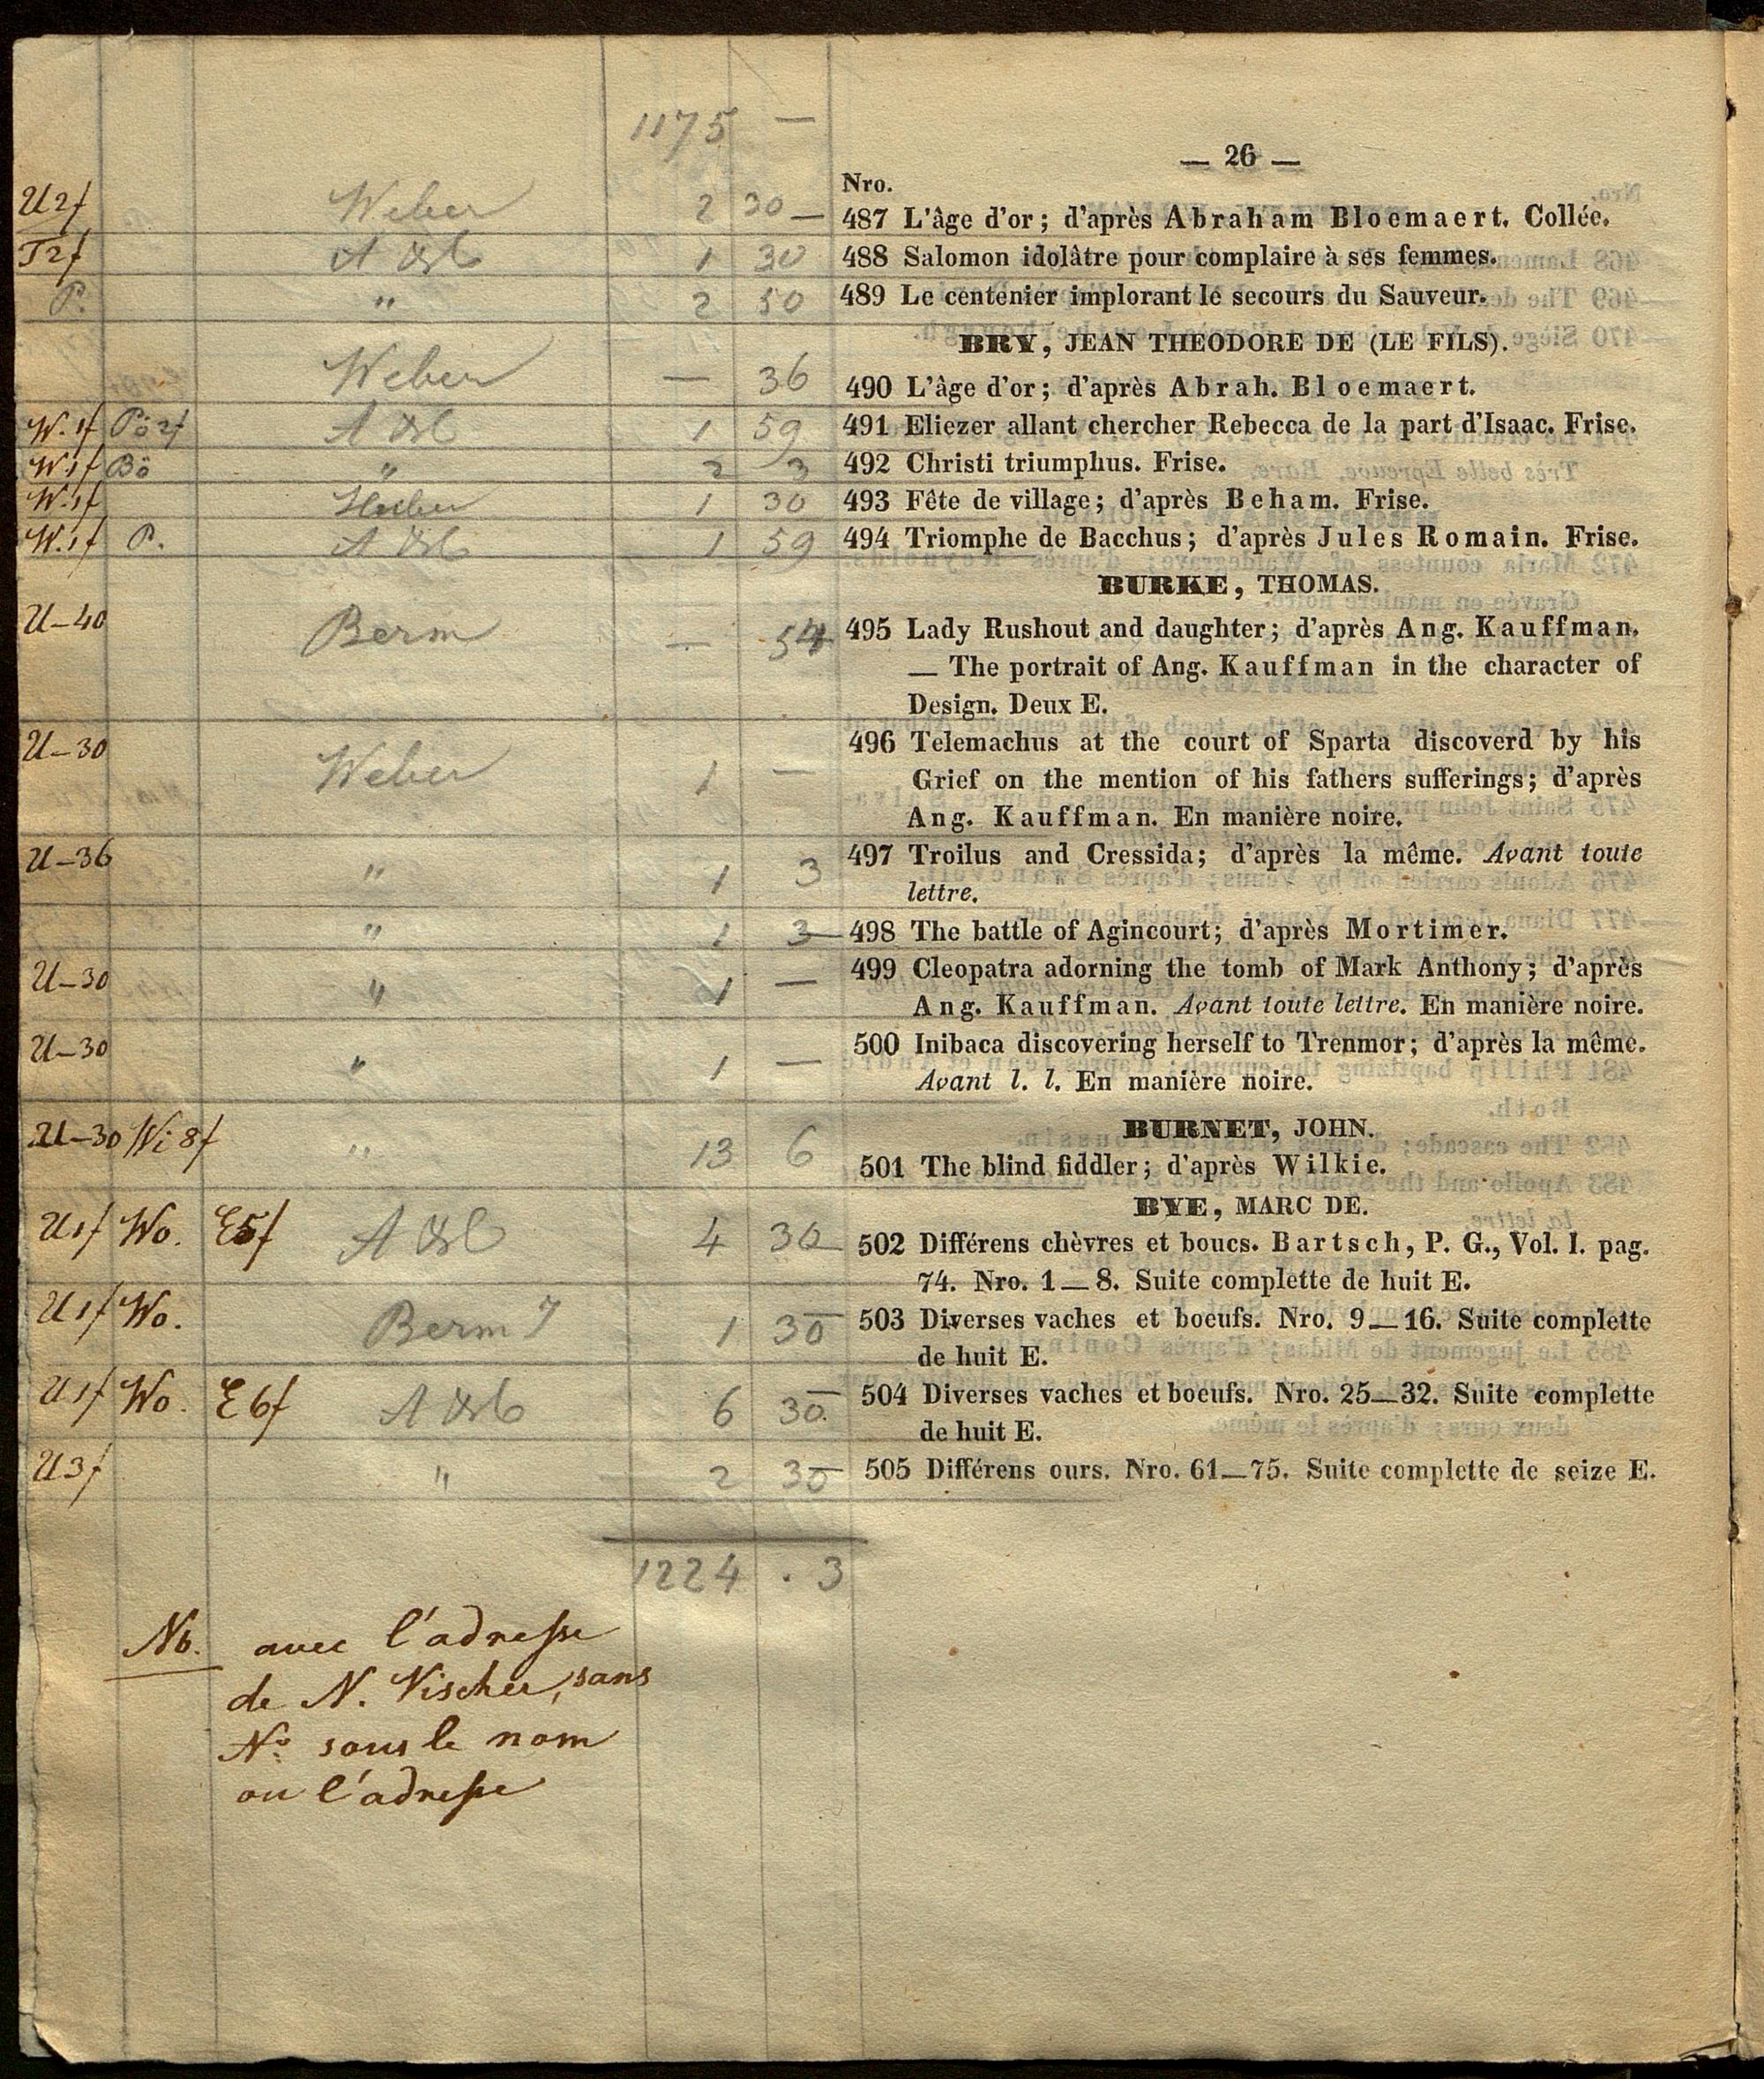 1175 —
— 26 —
Nro.
U 2f Weber 2 30 — 487 L'âge d'or; d'après Abraham Bloemaert. Collée.
T2f 1 30 488 Salomon idolâtre pour complaire à ses femmes.
P. " 2 50 489 Le centenier implorant le secours du Sauveur.
BRY, JEAN THEODORE DE (LE FILS).
Weber — 36 490 L'âge d'or; d'après Abrah. Bloemaert.
W. 1f Pö 2f 1 59 491 Eliezer allant chercher Rebecca de la part d'Isaac. Frise.
W. 1f Bö " 2 3 492 Christi triumphus. Frise.
W. 1f 1 30 493 Fête de village; d'après Beham. Frise.
W. 1f P. 1 59 494 Triomphe de Bacchus; d'après Jules Romain. Frise.
BURKE, THOMAS.
U—40 Berm — 54 495 Lady Rushout and daughter; d'après Ang. Kauffman.
— The portrait of Ang. Kauffman in the character of
Design. Deux E.
U—30 Weber 1 — 496 Telemachus at the court of Sparta discoverd by his
Grief on the mention of his fathers sufferings; d'après
Ang. Kauffman. En manière noire.
U—36 " 1 3 497 Troilus and Cressida; d'après la même. Avant toute
lettre.
" 1 3 — 498 The battle of Agincourt; d'après Mortimer.
U—30 " 1 — 499 Cleopatra adorning the tomb of Mark Anthony; d'après
Ang. Kauffman. Avant toute lettre. En manière noire.
U—30 " 1 — 500 Inibaca discovering herself to Trenmor; d'après la même.
Avant l. l. En manière noire.
BURNET, JOHN.
U—30 Wi 8f " 13 6 501 The blind fiddler; d'après Wilkie.
BYE, MARC DE.
U1f Wo. E5f 4 30 502 Différens chèvres et boucs. Bartsch, P. G., Vol. I. pag.
74. Nro. 1—8. Suite complette de huit E.
U1f Wo. Berm 1 30 503 Diverses vaches et boeufs. Nro. 9—16. Suite complette
de huit E.
U1f Wo. E6f 6 30 504 Diverses vaches et boeufs. Nro. 25—32. Suite complette
de huit E.
U3f " 2 30 505 Différens ours. Nro. 61—75. Suite complette de seize E.
1224 . 3
Nb. avec l'adresse
de N. Vischer, sans
No. sous le nom
ou l'adresse